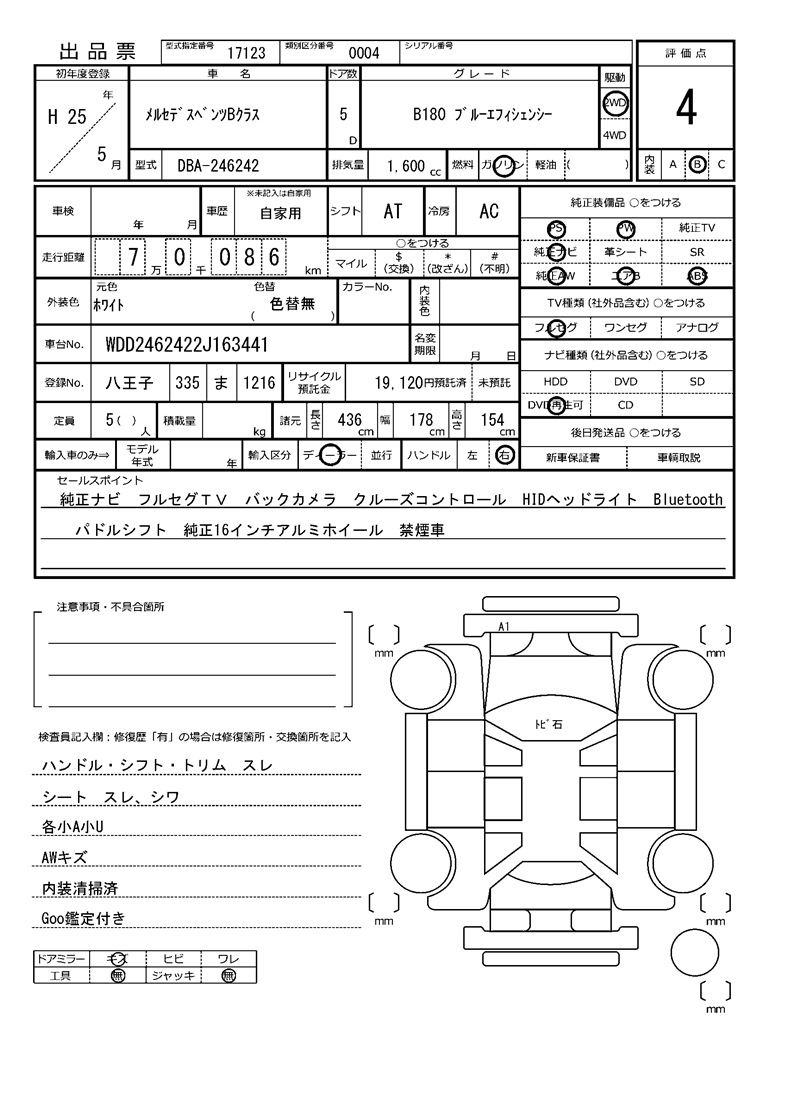 出品票 型式指定番号 17123 類別区分番号 0004 シリアル番号 評価点
初年度登録 車名 ドア数 グレード 駆動
H 25 年 5 月 ﾒﾙｾﾃﾞｽﾍﾞﾝﾂBｸﾗｽ 5 D B180 ﾌﾞﾙｰｴﾌｨｼｪﾝｼｰ 2WD 4WD 4
型式 DBA-246242 排気量 1,600 cc 燃料 ガソリン 軽油 ( ) 内装 A B C
車検 年 月 車歴 ※未記入は自家用 自家用 シフト AT 冷房 AC 純正装備品 ○をつける
PS PW 純正TV
走行距離 7 万 0 千 0 8 6 km ○をつける マイル $(交換) *(改ざん) #(不明) 純正ナビ 革シート SR
純正AW エアB ABS
外装色 元色 ﾎﾜｲﾄ 色替 色替無 ( ) カラーNo. 内装色 TV種類(社外品含む)○をつける
フルセグ ワンセグ アナログ
車台No. WDD2462422J163441 名変期限 月 日 ナビ種類(社外品含む)○をつける
登録No. 八王子 335 ま 1216 リサイクル預託金 19,120円預託済 未預託 HDD DVD SD
DVD再生可 CD
定員 5( )人 積載量 kg 諸元 長さ 436 cm 幅 178 cm 高さ 154 cm 後日発送品 ○をつける
輸入車のみ⇒ モデル年式 年 輸入区分 ディーラー 並行 ハンドル 左 右 新車保証書 車輌取説
セールスポイント
純正ナビ フルセグTV バックカメラ クルーズコントロール HIDヘッドライト Bluetooth
パドルシフト 純正16インチアルミホイール 禁煙車
注意事項・不具合箇所
A1
mm mm
ﾄﾋﾞ石
検査員記入欄：修復歴「有」の場合は修復箇所・交換箇所を記入
ハンドル・シフト・トリム スレ
シート スレ、シワ
各小A小U
AWキズ
内装清掃済
Goo鑑定付き
mm mm
ドアミラー キズ ヒビ ワレ
工具 無 ジャッキ 無
mm